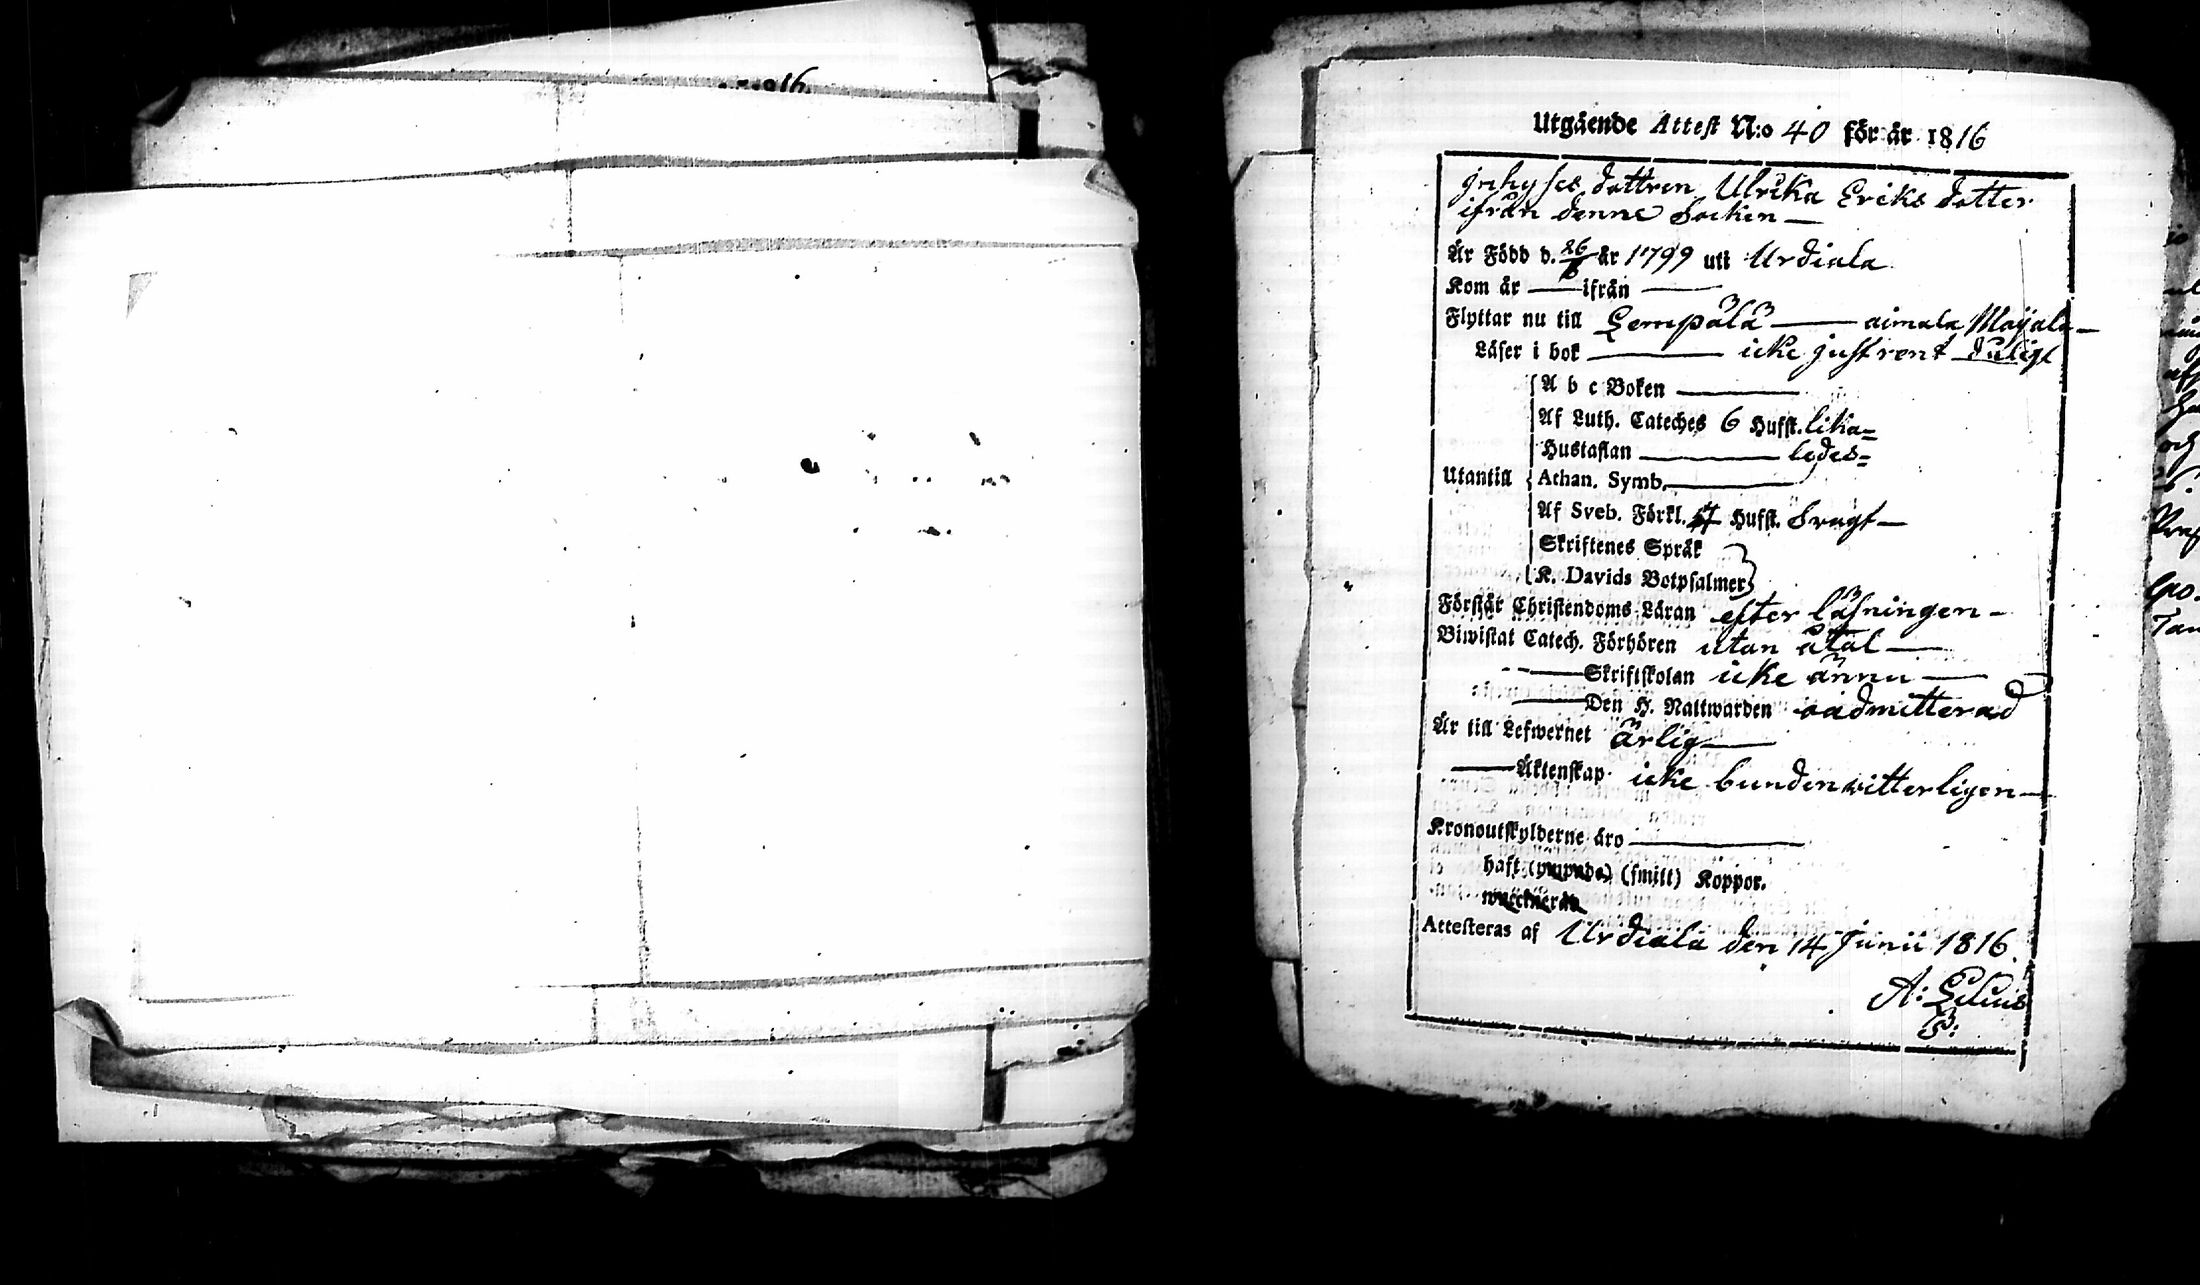 1816.
Utgående Attest N:o 40 för år 1816
Inhyses dottren Ulrika Eriks dotter
ifrån denne Socken —
Är Född d. 26/6 år 1799 uti Urdiala
Kom år — ifrån —
Flyttar nu till Lempälä — aimala Moijala —
Läser i bok — icke just rent duligt
A b c Boken —
Af Luth. Cateches 6 Hufst. lika=
Hustaflan — ledes=
Utantill Athan. Symb. —
Af Sveb. Förkl. 7 Hufst. Svagt —
Skriftenes Språk
K. Davids Botpsalmer
Förstår Christendoms Läran efter läsningen —
Biwistat Catech. Förhören utan åtal —
— Skriftskolan icke ännu —
— Den H. Nattwarden oadmitterad
Är till Lefwernet ärlig —
— Äktenskap icke bunden vitterligen —
Kronoutskylderne äro —
haft (ympade) (smitt) Koppor.
Attesteras af Urdiala den 14 Junii 1816.
A: Lilius
P: